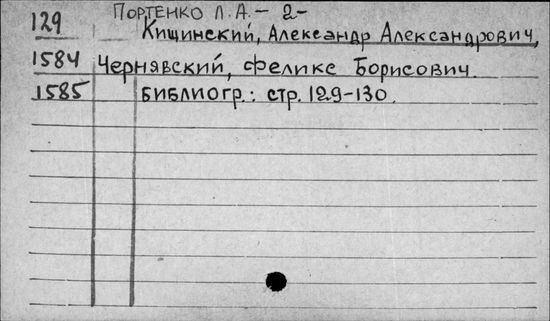 Портенко Л. А. - 2 -
129 Кищинский, Александр Александрович,
1584 Чернявский, Феликс Борисович.
1585 Библиогр.: стр. 129-130.